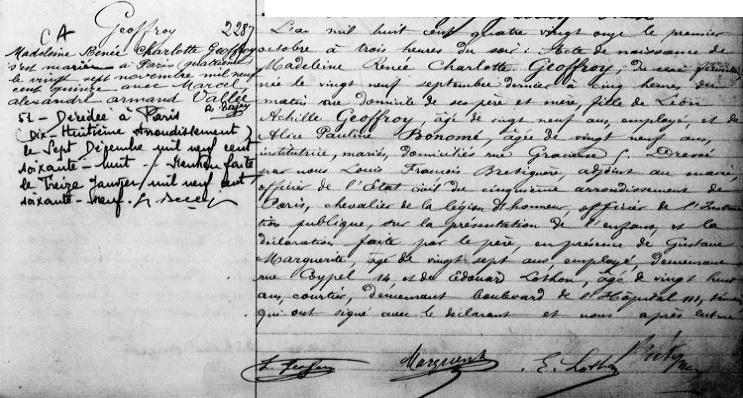 CA
Geoffroy 2287
Madeleine Renée Charlotte Geoffroy
s'est mariée à Paris (quatrième)
le vingt sept novembre mil neuf
cent quinze avec Marcel
alexandre armand Vallée
51 - Décédée à Paris
(Dix-Huitième Arrondissement)
le Sept Décembre mil neuf cent
soixante-huit - Mention faite
le Treize Janvier mil neuf cent
soixante-neuf.
L'an mil huit cent quatre vingt onze le premier
octobre à trois heures du soir : Acte de naissance de
Madeleine Renée Charlotte Geoffroy, de sexe féminin
née le vingt neuf septembre dernier à cinq heures du
matin au domicile de ses père et mère, fille de Léon
Achille Geoffroy, âgé de vingt neuf ans, employé, et de
Alice Pauline Bonomé, âgée de vingt neuf ans,
institutrice, mariés, domiciliés rue Gracieuse 5. Dressé
par nous Louis François Bretignère, adjoint au maire,
officier de l'Etat civil du cinquième arrondissement de
Paris, chevalier de la légion d'honneur, officier de l'Instruc
tion publique, sur la présentation de l'enfant, et la
déclaration faite par le père, en présence de Gustave
Marguerite, âgé de vingt sept ans employé, demeurant
rue Coypel 14 et de Edouard Lothon, âgé de vingt huit
ans, courtier, demeurant boulevard de l'Hôpital 111, témoins
qui ont signé avec le déclarant et nous après lecture
Marguerite E. Lothon